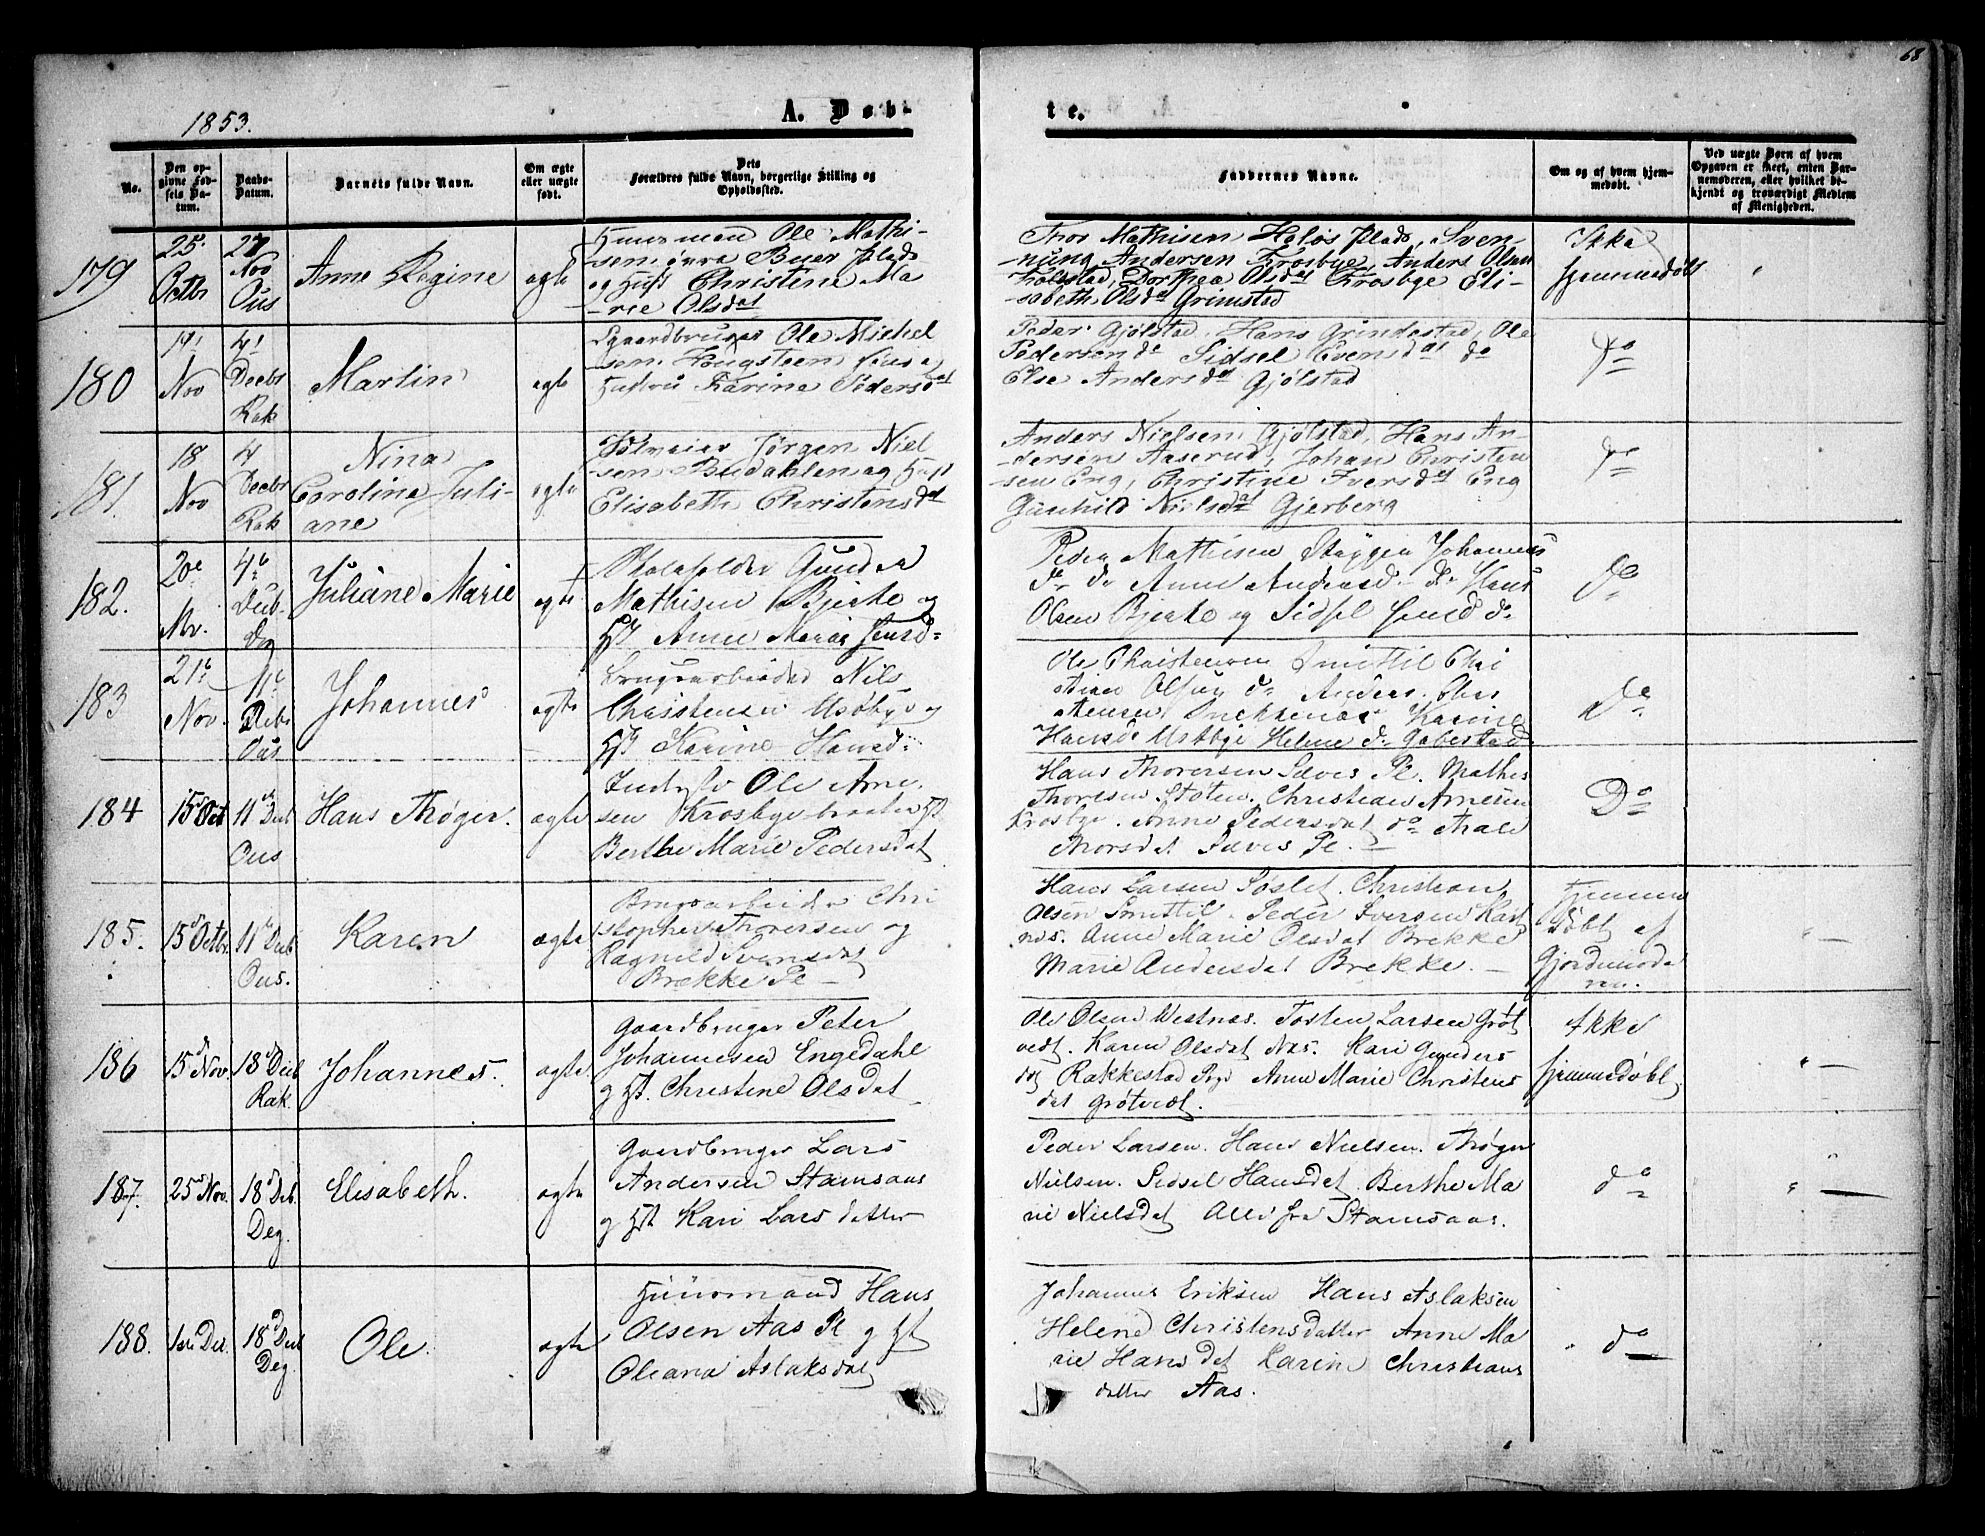 68
1853.
A. Døb-
te.
No.
Den op-
givne Fød-
sels Da-
tum.
Daabs-
Datum.
Barnets fulde Navn.
Om ægte
eller uægte
født.
Dets
Forældres fulde Navn, borgerlige Stilling og
Opholdssted.
Faddernes Navne.
Om og af hvem hjem-
medøbt.
Ved uægte Børn af hvem
Opgaven er skeet, enten Bar-
nemoderen, eller hvilket be-
kjendt og troværdigt Medlem
af Menigheden.
179
25
Octbr
27
Nov
Ous
Anne Regine
ægte
Huusmand Ole Mathi-
sen øvre Buer Plads
og Hust Christine Ma
-rie Olsdat
Thor Mathisen Holøs Plads, Sven-
nung Andersen Krosbye, Anders Olsen
Dorthea Olsdat Krosbye Eli-
sabeth Olsdat Grimstad
Ikke
hjemmedøbt
180
14
Nov
4
Decbr
Rak
Martin
ægte
Gaardbruger Ole Michel
sen
Hustru Karine Pedersdat
Peder Gjølstad, Hans Grindestad, Ole
Pedersen do Sidsel Evensdat do
Else Andersdat Gjølstad
do
181
18
Nov
4
Decbr
Rak
Nina
Caroline Juli-
ane
ægte
Jørgen Niel
sen Budahlen og Hust
Elisabeth Christensdat
Anders Nielsen Gjølstad, Hans An-
dersen Aaserud, Johan Christen
sen Eng, Christine Iversdat Eng
Gunhild Nielsdat Gjerberg
do
182.
20
Nv.
4
Decb.
Deg
Juliane Marie
ægte
Gunder
Mathisen Bjerke og
Hst Anne Marie Jensd=
Peder Mathisen Johannes
do do Anne Andersd do Hans
Olsen Bjerke og Sidsel Jensd do
do
183
21
Nov.
11
Decbr
Ous
Johannes
ægte
Brugsarbeider Nils
Christensen og
Hst Karine Hansd=
Ole Christensen Smittil Chri
stian Olsen do Anders Chri
stensen Karine
Hansd Helene do
do
184
15 Oct
11 Decb
Ous
Hans Thøger.
ægte
Ole Arne
sen Krosbyebraaten Hst
Berthe Marie Pedersdat
Hans Thoresen Pl. Mathis
Thoresen Christian Arnesen
Krosbye. Anne Pedersdat do
Thorsdat Pl.
Do
185.
15 Octbr
11 Decb
Ous.
Karen
ægte
Brugsarbeider Chri
stopher Thoresen og
Ragnild Svensdat
Brekke Pl
Hans Larsen Christian
Olsen Smittil. Peder Iversen
næs. Anne Marie Olsdat Brekke
Marie Andersdat Brekke.
Hjemme
døbt af
Gjordmode
ren.
"
186
15 Nov.
18 Decb
Rak.
Johannes.
ægte
Gaardbruger Peter
Johannesen Engedahl
g Hst. Christine Olsdat
Ole Olsen Westnæs. Tosten Larsen Grøt
vedt. Karen Olsdat Næs. Kari Gunders
dat Rakkestad Anne Marie Christens
dat Grøtvedt.
Ikke
hjemmedøbt
"
187.
25 Nov.
18 Deb.
Deg.
Elisabeth.
ægte
Gaardbruger Lars
Andersen Stamsaas
g Hst Kari Larsdatter
Peder Larsen. Hans Nielsen. Thøger
Nielsen. Sidsel Hansdat. Berthe Ma
rie Nielsdat Alle fra Stamsaas.
do
"
188.
1ste Dec.
18 Decb
Deg.
Ole.
ægte
Huusmand Hans
Olsen Aas Pl g Hst
Oleana Aslaksdat
Johannes Eriksen Hans Aslaksen
Helene Christensdatter Anne Ma
rie Hansdat Karine Christians
datter Aas.
do